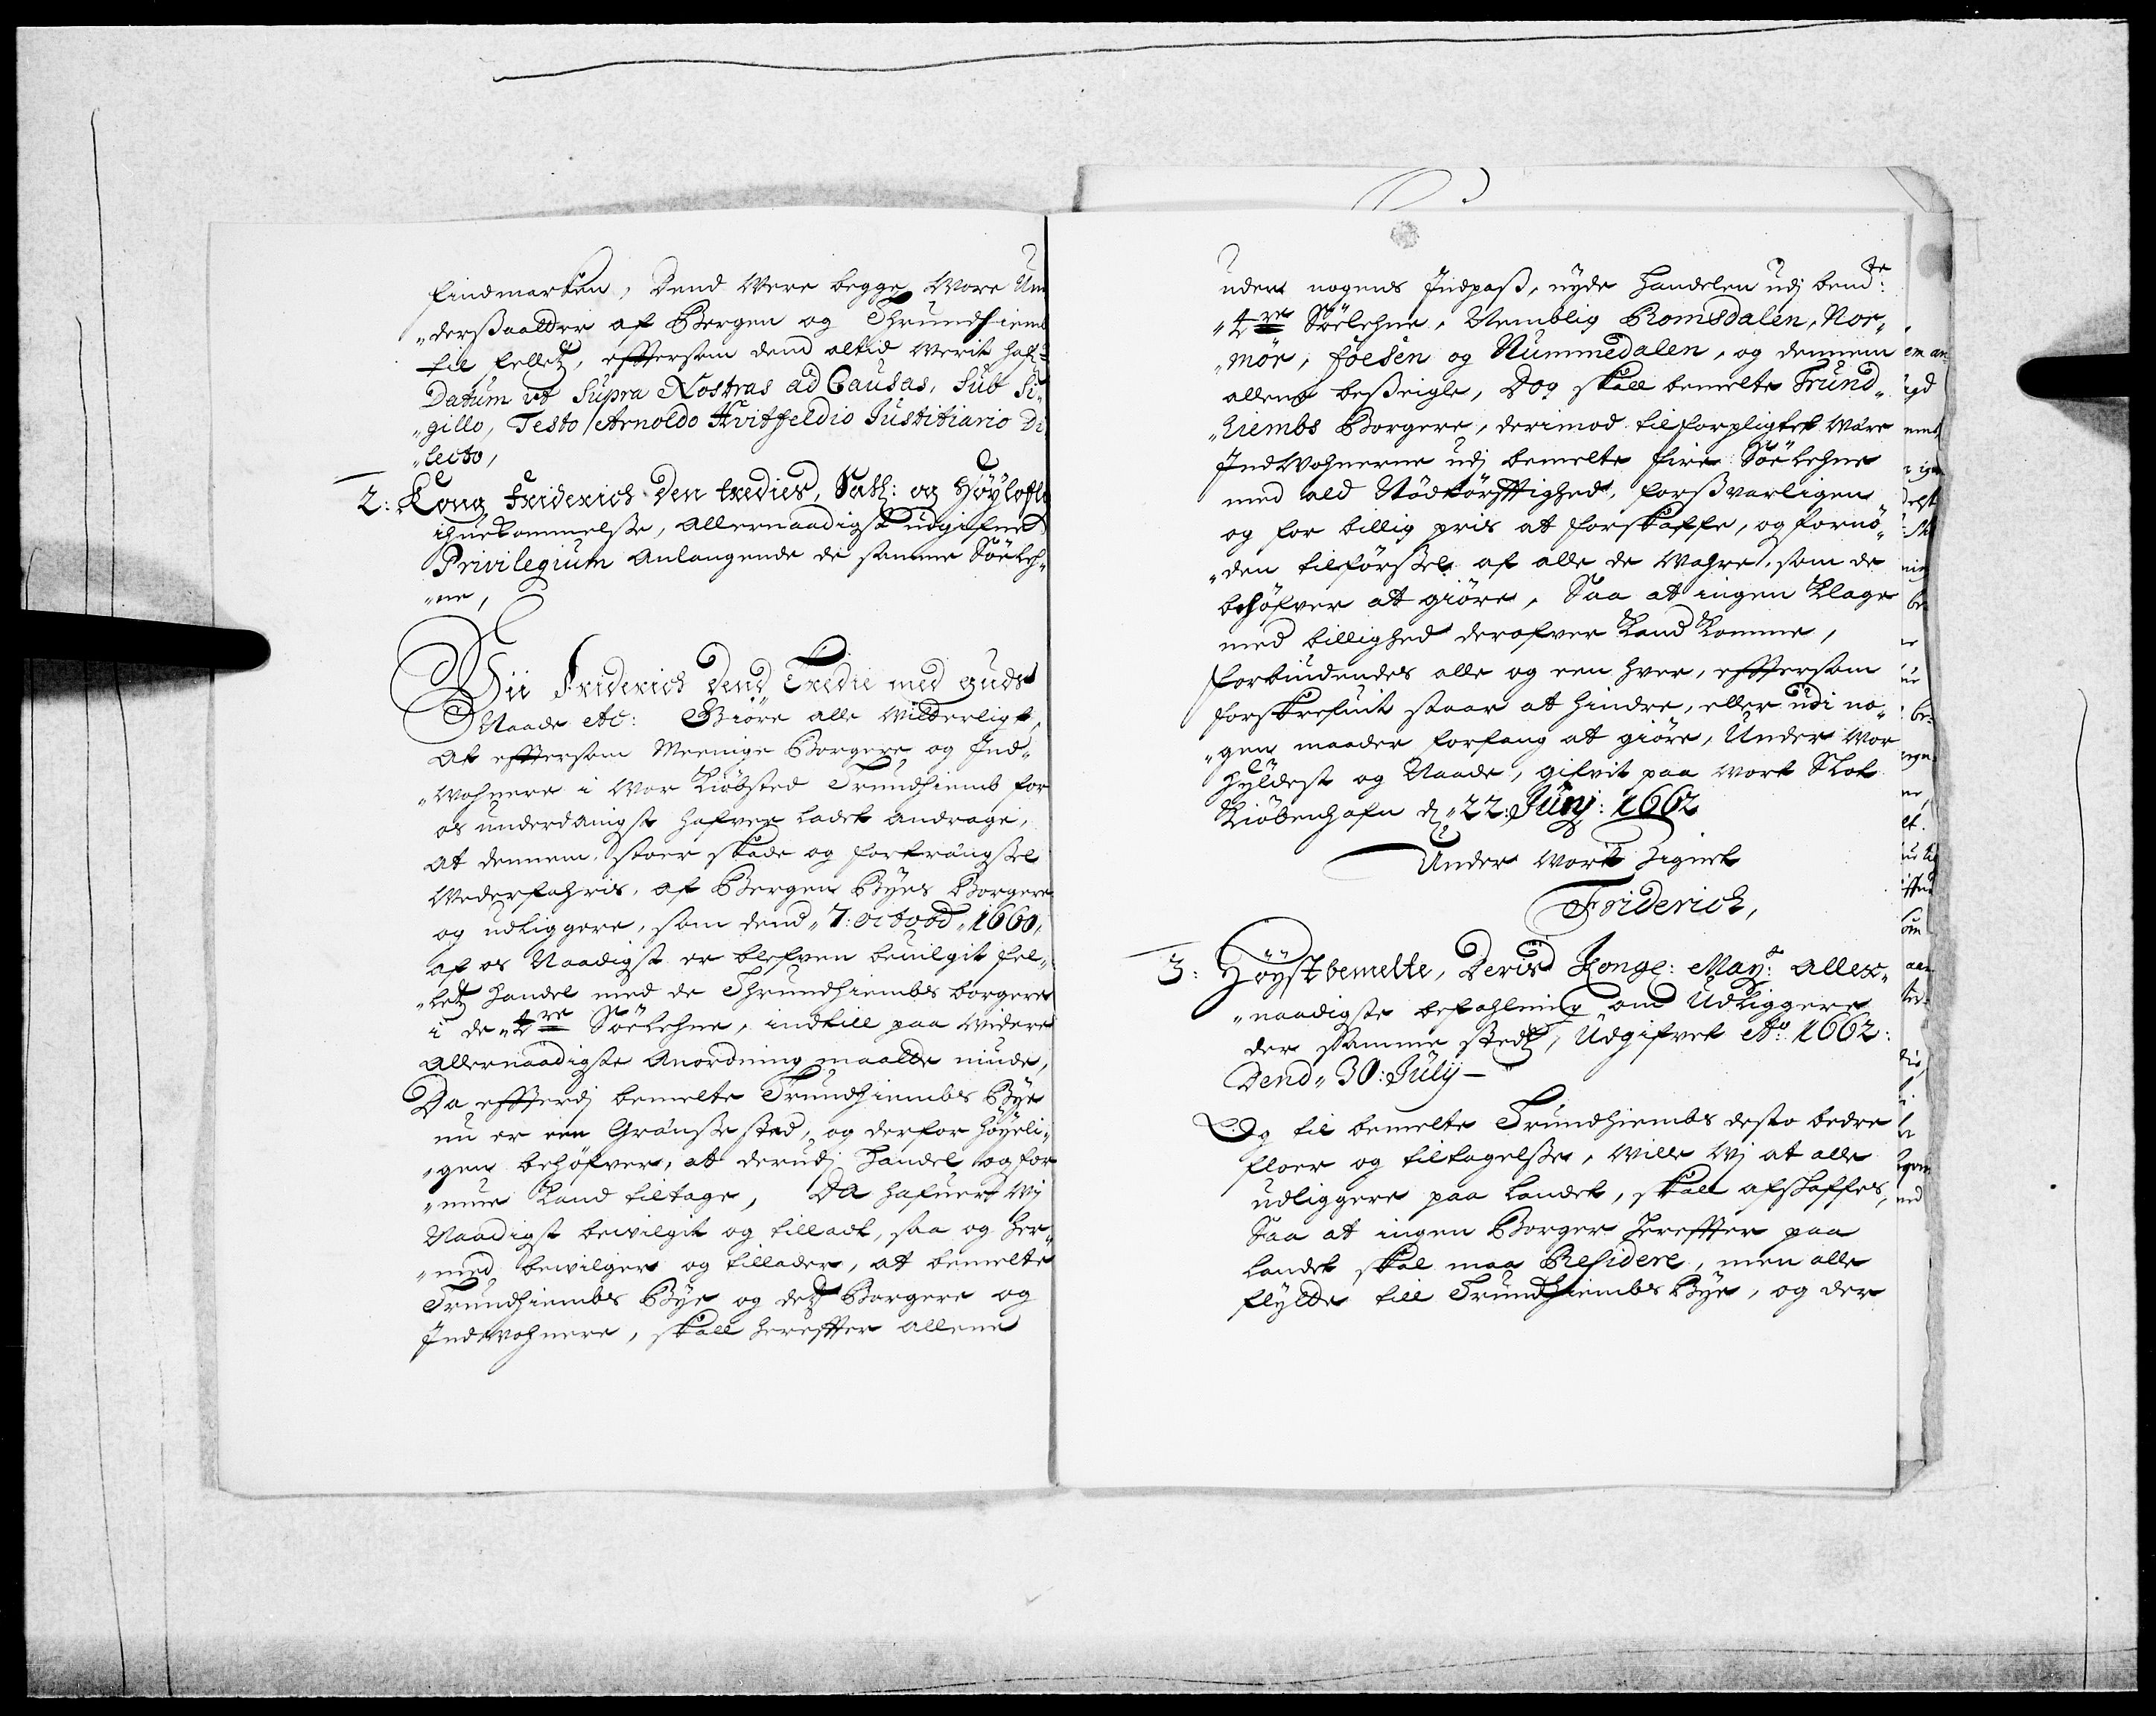 findmarken, Dend Were begge Wore Un
„derßaatter af Bergen og Thrundhiemb
til felletz, efftersom dend altid Werit hafr
Datum ut Supra Nostras ad Causas, Sub Si„
„gillo, Testo Arnoldo Hvitfeldio Justitiario Di
„lecto,
2: Kong Friderich den tredies, Salh: og Höyloflig
ihuekommelsse, allernaadigst udgifne
Privilegium anlangende de samme Söeleh„
„ne,
Wii Friderich Dend Tredie med Guds
Naade etc: Giöre alle Witterligt,
At efftersom Meenige Borgere og Ind„
„Wohnere i Wor Kiöbsted Trundhiemb for
os underdanigst hafver ladet andrage,
at dennem, stoer skade og fortrængßel
Wederfahris, af Bergens Byes Borgere
og udliggere, som dend „7: octobd „1660,
af os Naadigst er blefven beuilget fel„
„letz handel med de Thrundhiembs borgere
i de „4re Söelehne, indtill paa Widere
allernaadigste Anordning maatte niude,
Da effterdj bemelte Trundhiembs Bye
nu er een Grænsse sted, og derfor höyeli„
„gen behöfver, at derudj handel og for
„mue kand tiltage, Da hafuer Wj
Naadigst bewilget og tilladt, saa og her„
„med bewilger og tillader, at bemelte
Trundhiembs Bye og detz Borgere og
Indwohnere, skall hereffter allene
uden nogens Indpaß, nyde handelen udj bemte:
„4re Söelehne, Nemblig Romsdalen, Nor„
„mör, foesen og Nummedalen, og dennem
allene beßeigle, Dog skall bemelte Trund„
„hiembs Borgere, derimod tilforpligtet Wære
IndWohnerne udj bemelte fire Söelehne
med ald Nödtörfftighed, forsvarligen
og for billig pris at forskaffe, og fornö„
„den tilförßel af alle de Wahre, som de
behöfver at giöre, Saa at ingen klage
med billighed derofver kand komme,
forbiudendes alle og een hver, efftersom
forskrefuit staar at hindre, eller udi no„
„gen maader forfang at giöre, Under Wor
hyldest og Naade, gifvit paa Wort Slot
Kiöbenhafn d: „22: Junj: 1662
Under Wort Signet
Friderich,
3: Höystbemelte, Deris Kongl: Mayt: aller„
„naadigste befahlning om Udliggere
der samme stedtz, Udgifvet Ao: 1662:
Dend „30: Julij —
Og til bemelte Trundhiembs desto bedre
floer og tiltagelsse, Wille Wj at alle
udliggere paa landet, skall afskaffes,
Saa at ingen Borger hereffter paa
landet skal maa Residere, men alle
flytte till Trundhiembs Bye, og der